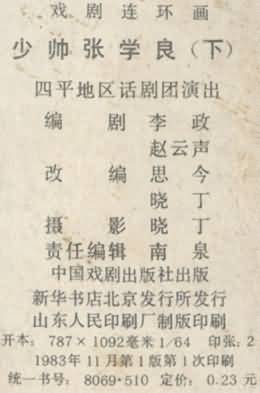 戏剧连环画
少帅张学良(下)
四平地区话剧团演出
编 剧 李 政
赵云声
改 编 思 今
晓 丁
摄 影 晓 丁
责任编辑 南 泉
中国戏剧出版社出版
新华书店北京发行所发行
山东人民印刷厂制版印刷
开本: 787×1092毫米 1/64 印张: 2
1983年11月第1版第1次印刷
统一书号: 8069·510 定价: 0.23元